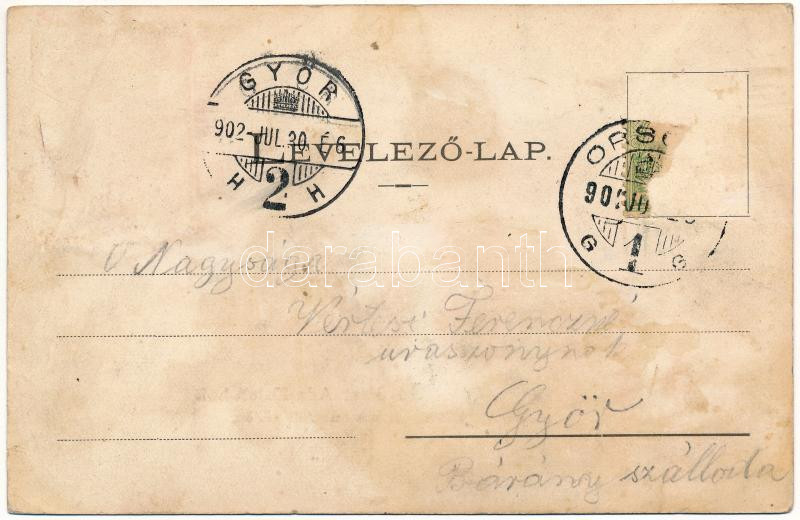 GYŐR
902 JUL. 30. É6
H 2 H
LEVELEZŐ-LAP.
ORS
902 JU
G 1 G
Ő Nagysága
Vértesi Ferenczné
uraszonynak
Győr
Bárány szálloda
darabanth